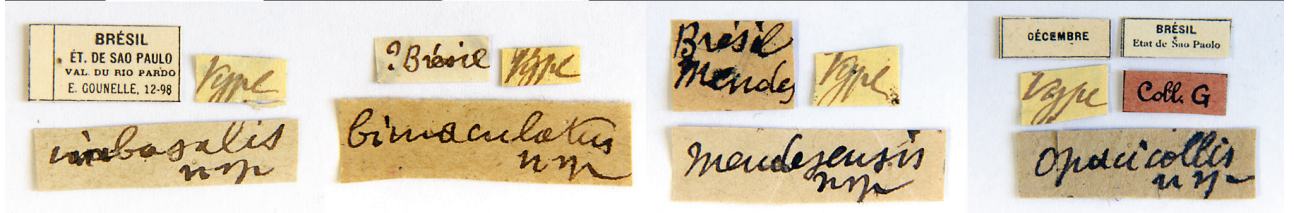 BRÉSIL
ÉT. DE SAO PAULO
VAL DU RIO PARDO
E. GOUNELLE, 12-98
Type
imbasalis
nm
? Brésil
Type
bimaculatus
nm
Brésil
Mendes
Type
Mendesensis
nm
DÉCEMBRE
BRÉSIL
Etat de Sao Paolo
Type
Coll. G
Opacicollis
nm